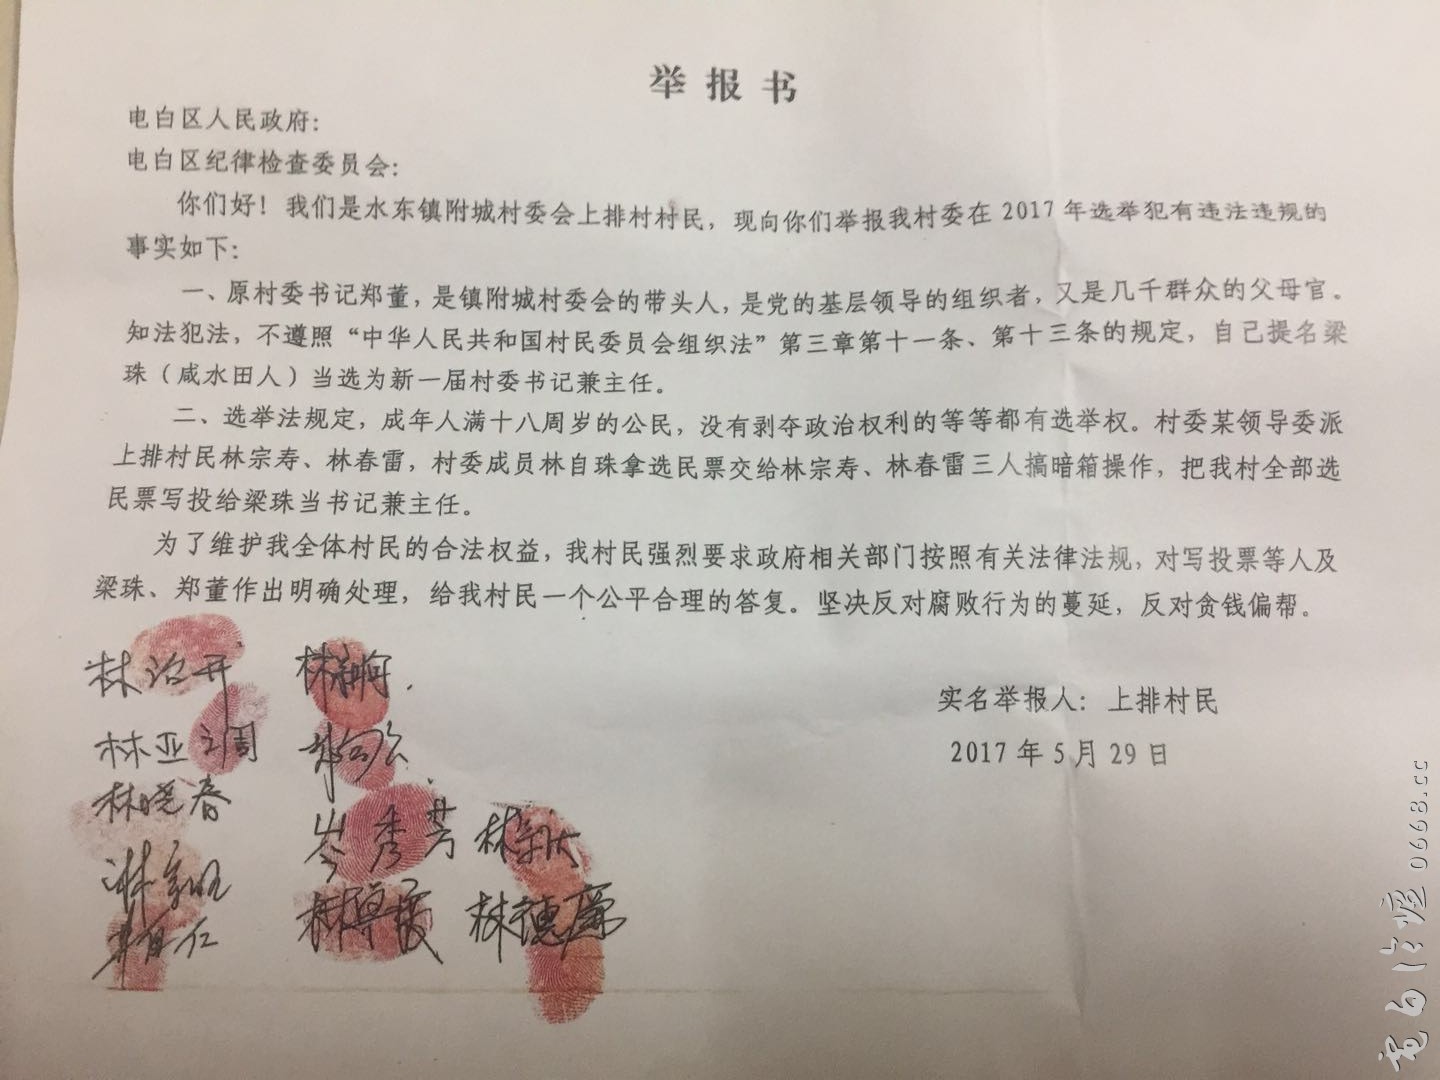 举报书
电白区人民政府:
电白区纪律检查委员会:
你们好！我们是水东镇附城村委会上排村村民，现向你们举报我村委在2017年选举犯有违法违规的
事实如下:
一、原村委书记郑董，是镇附城村委会的带头人，是党的基层领导的组织者，又是几千群众的父母官。
知法犯法，不遵照“中华人民共和国村民委员会组织法”第三章第十一条、第十三条的规定，自己提名梁
珠（咸水田人）当选为新一届村委书记兼主任。
二、选举法规定，成年人满十八周岁的公民，没有剥夺政治权利的等等都有选举权。村委某领导委派
上排村民林宗寿、林春雷，村委成员林自珠拿选民票交给林宗寿、林春雷三人搞暗箱操作，把我村全部选
民票写投给梁珠当书记兼主任。
为了维护我全体村民的合法权益，我村民强烈要求政府相关部门按照有关法律法规，对写投票等人及
梁珠、郑董作出明确处理，给我村民一个公平合理的答复。坚决反对腐败行为的蔓延，反对贪钱偏帮。
实名举报人：上排村民
2017年5月29日
林治开
林亚调
林晓春
岑秀芳
林德廉
0668.cc